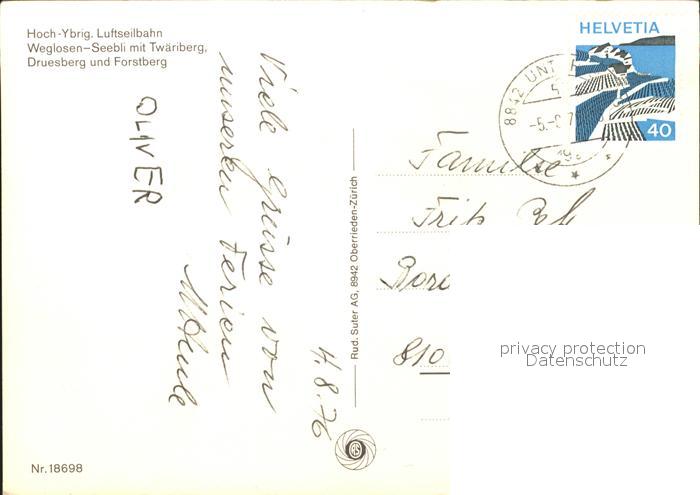 Hoch-Ybrig. Luftseilbahn
Weglosen–Seebli mit Twäriberg,
Druesberg und Forstberg
HELVETIA
40
8842 UNT
-5.-8.7
Viele Grüsse von
unseren Ferien
OLIVER
4.8.76
Rud. Suter AG, 8942 Oberrieden-Zürich
Familie
Fritz
810
privacy protection
Datenschutz
Nr. 18698